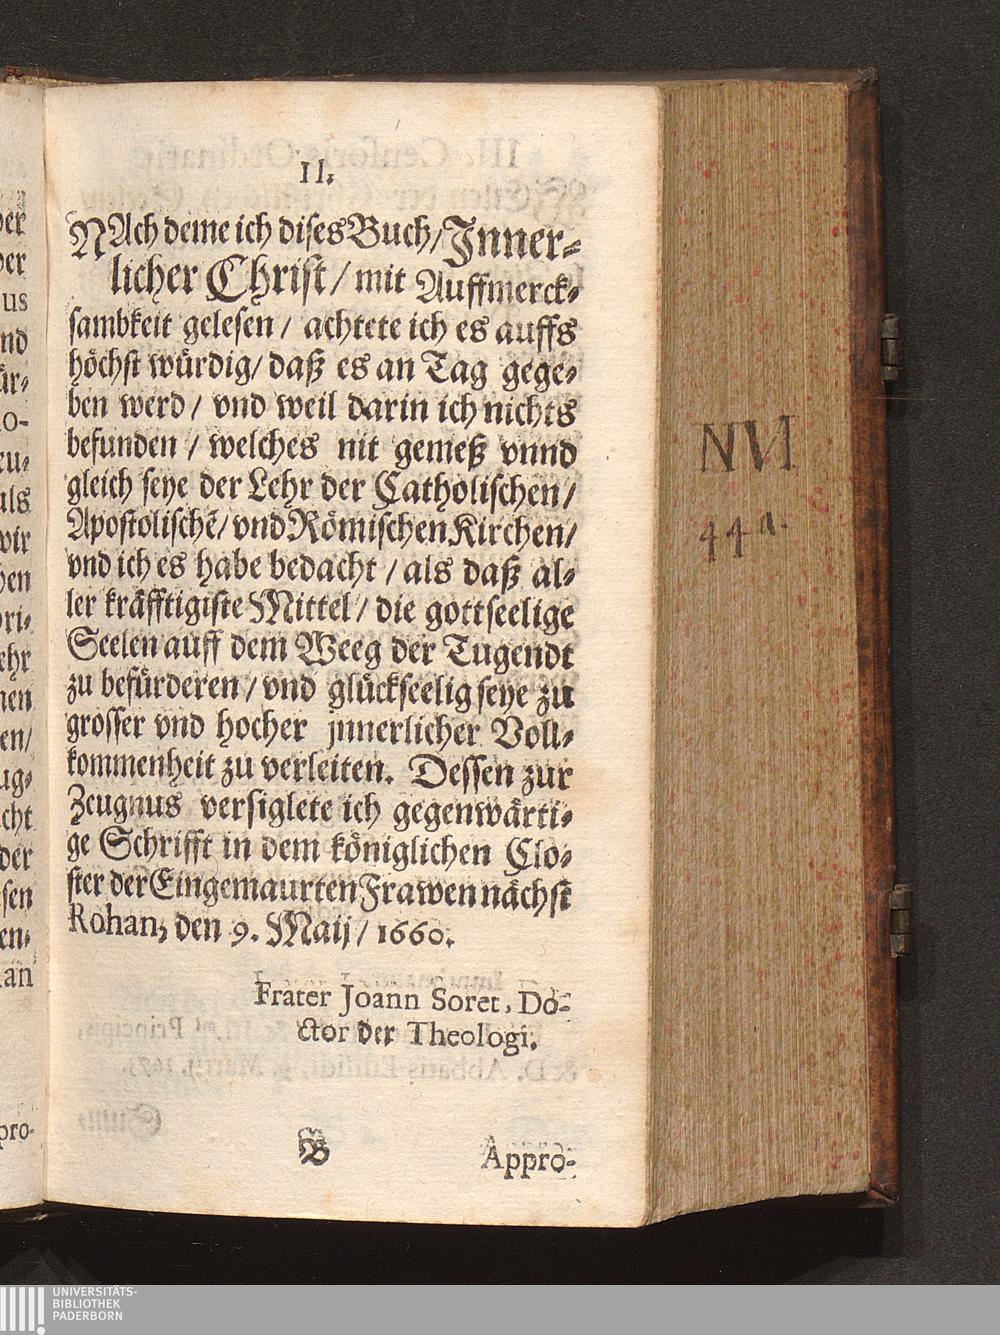 II.
NAch deme ich dises Buch/ Inner-
licher Christ/ mit Auffmerck-
sambkeit gelesen/ achtete ich es auffs
höchst würdig/ daß es an Tag gege-
ben werd/ vnd weil darin ich nichts
befunden/ welches nit gemeß vnnd
gleich seye der Lehr der Catholischen/
Apostolischē/ vnd Römischen Kirchen/
vnd ich es habe bedacht/ als daß al-
ler kräfftigiste Mittel/ die gottseelige
Seelen auff dem Weeg der Tugendt
zu befürderen/ vnd glückseelig seye zu
grosser vnd hocher jnnerlicher Voll-
kommenheit zu verleiten. Dessen zur
Zeugnus versiglete ich gegenwärti-
ge Schrifft in dem königlichen Clo-
ster der Eingemaurten Frawen nächst
Rohan, den 9. Maij/ 1660.
Frater Joann Soret, Do-
ctor der Theologi.
B Appro-
NVI
44a.
UNIVERSITÄTS-
BIBLIOTHEK
PADERBORN